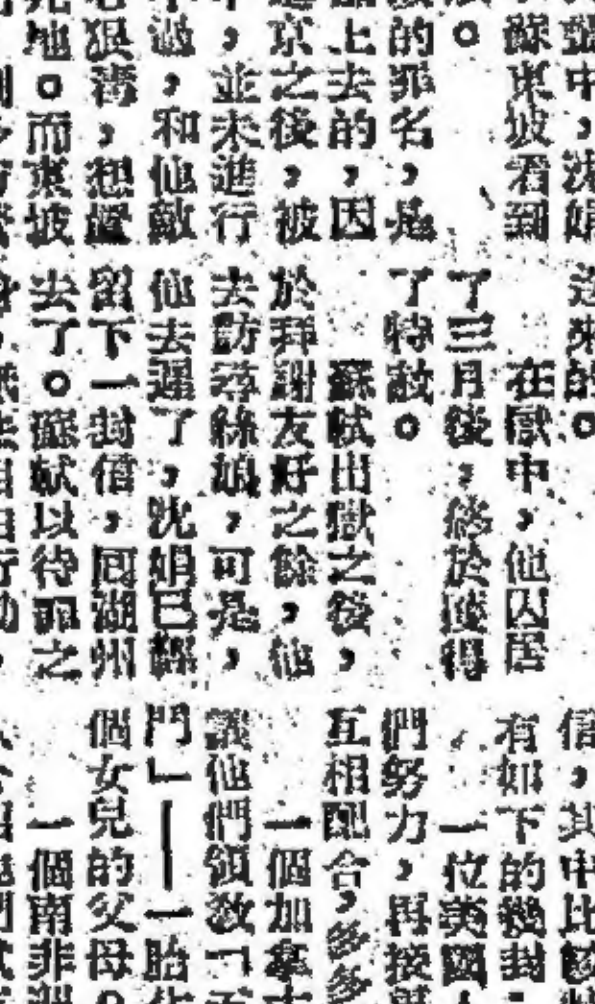 中，沈娟
蘇東坡看到
。
的罪名，是
上去的，因
京之後，被
，並未進行
過，和他敵
狠毒，想置
地。而東坡
送來的。
在獄中，他囚居
了三月後，終於獲得
了特赦。
蘇軾出獄之後，
於拜謝友好之餘，他
去訪尋娟，可是，
他去遲了，沈娟已經
留下一封信，回湖州
去了。蘇軾以待罪之
信，其中比較
有如下的幾封：
一位英國
們努力，再接
互相配合，多多
一個加拿大
議他們領教「
門」——一胎
個女兒的父母。
一個南非洲